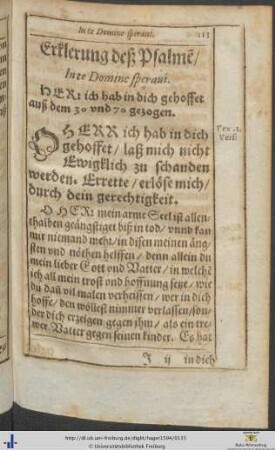 In te Domine speraui. 113
Erklerung deß Psalmē/
In te Domine speraui.
HER: ich hab in dich gehoffet
auß dem 30 vnd 70 gezogen.
OHERR ich hab in dich
gehoffet/ laß mich nicht
Ewigklich zu schanden
werden. Errette/ erlöse mich/
durch dein gerechtigkeit.
O HER: mein arme Seel ist allen-
thalben geängstiget biß in tod/ vnnd kan
mir niemand mehr/ in disen meinen äng-
sten vnd nöthen helffen/ denn allein du
mein lieber Gott vnd Vatter/ in welchē
ich all mein trost vnd hoffnung setze/ wie
du dañ vil malen verheissen/ wer in dich
hoffe/ den wöllest nimmer verlassen/ son-
der dich erzeigen gegen jhm/ als ein tre-
wer Vatter gegen seinen kinder. Es hat
J ij in dich
http://dl.ub.uni-freiburg.de/diglit/hager1594/0135
© Universitätsbibliothek Freiburg
Baden-Württemberg